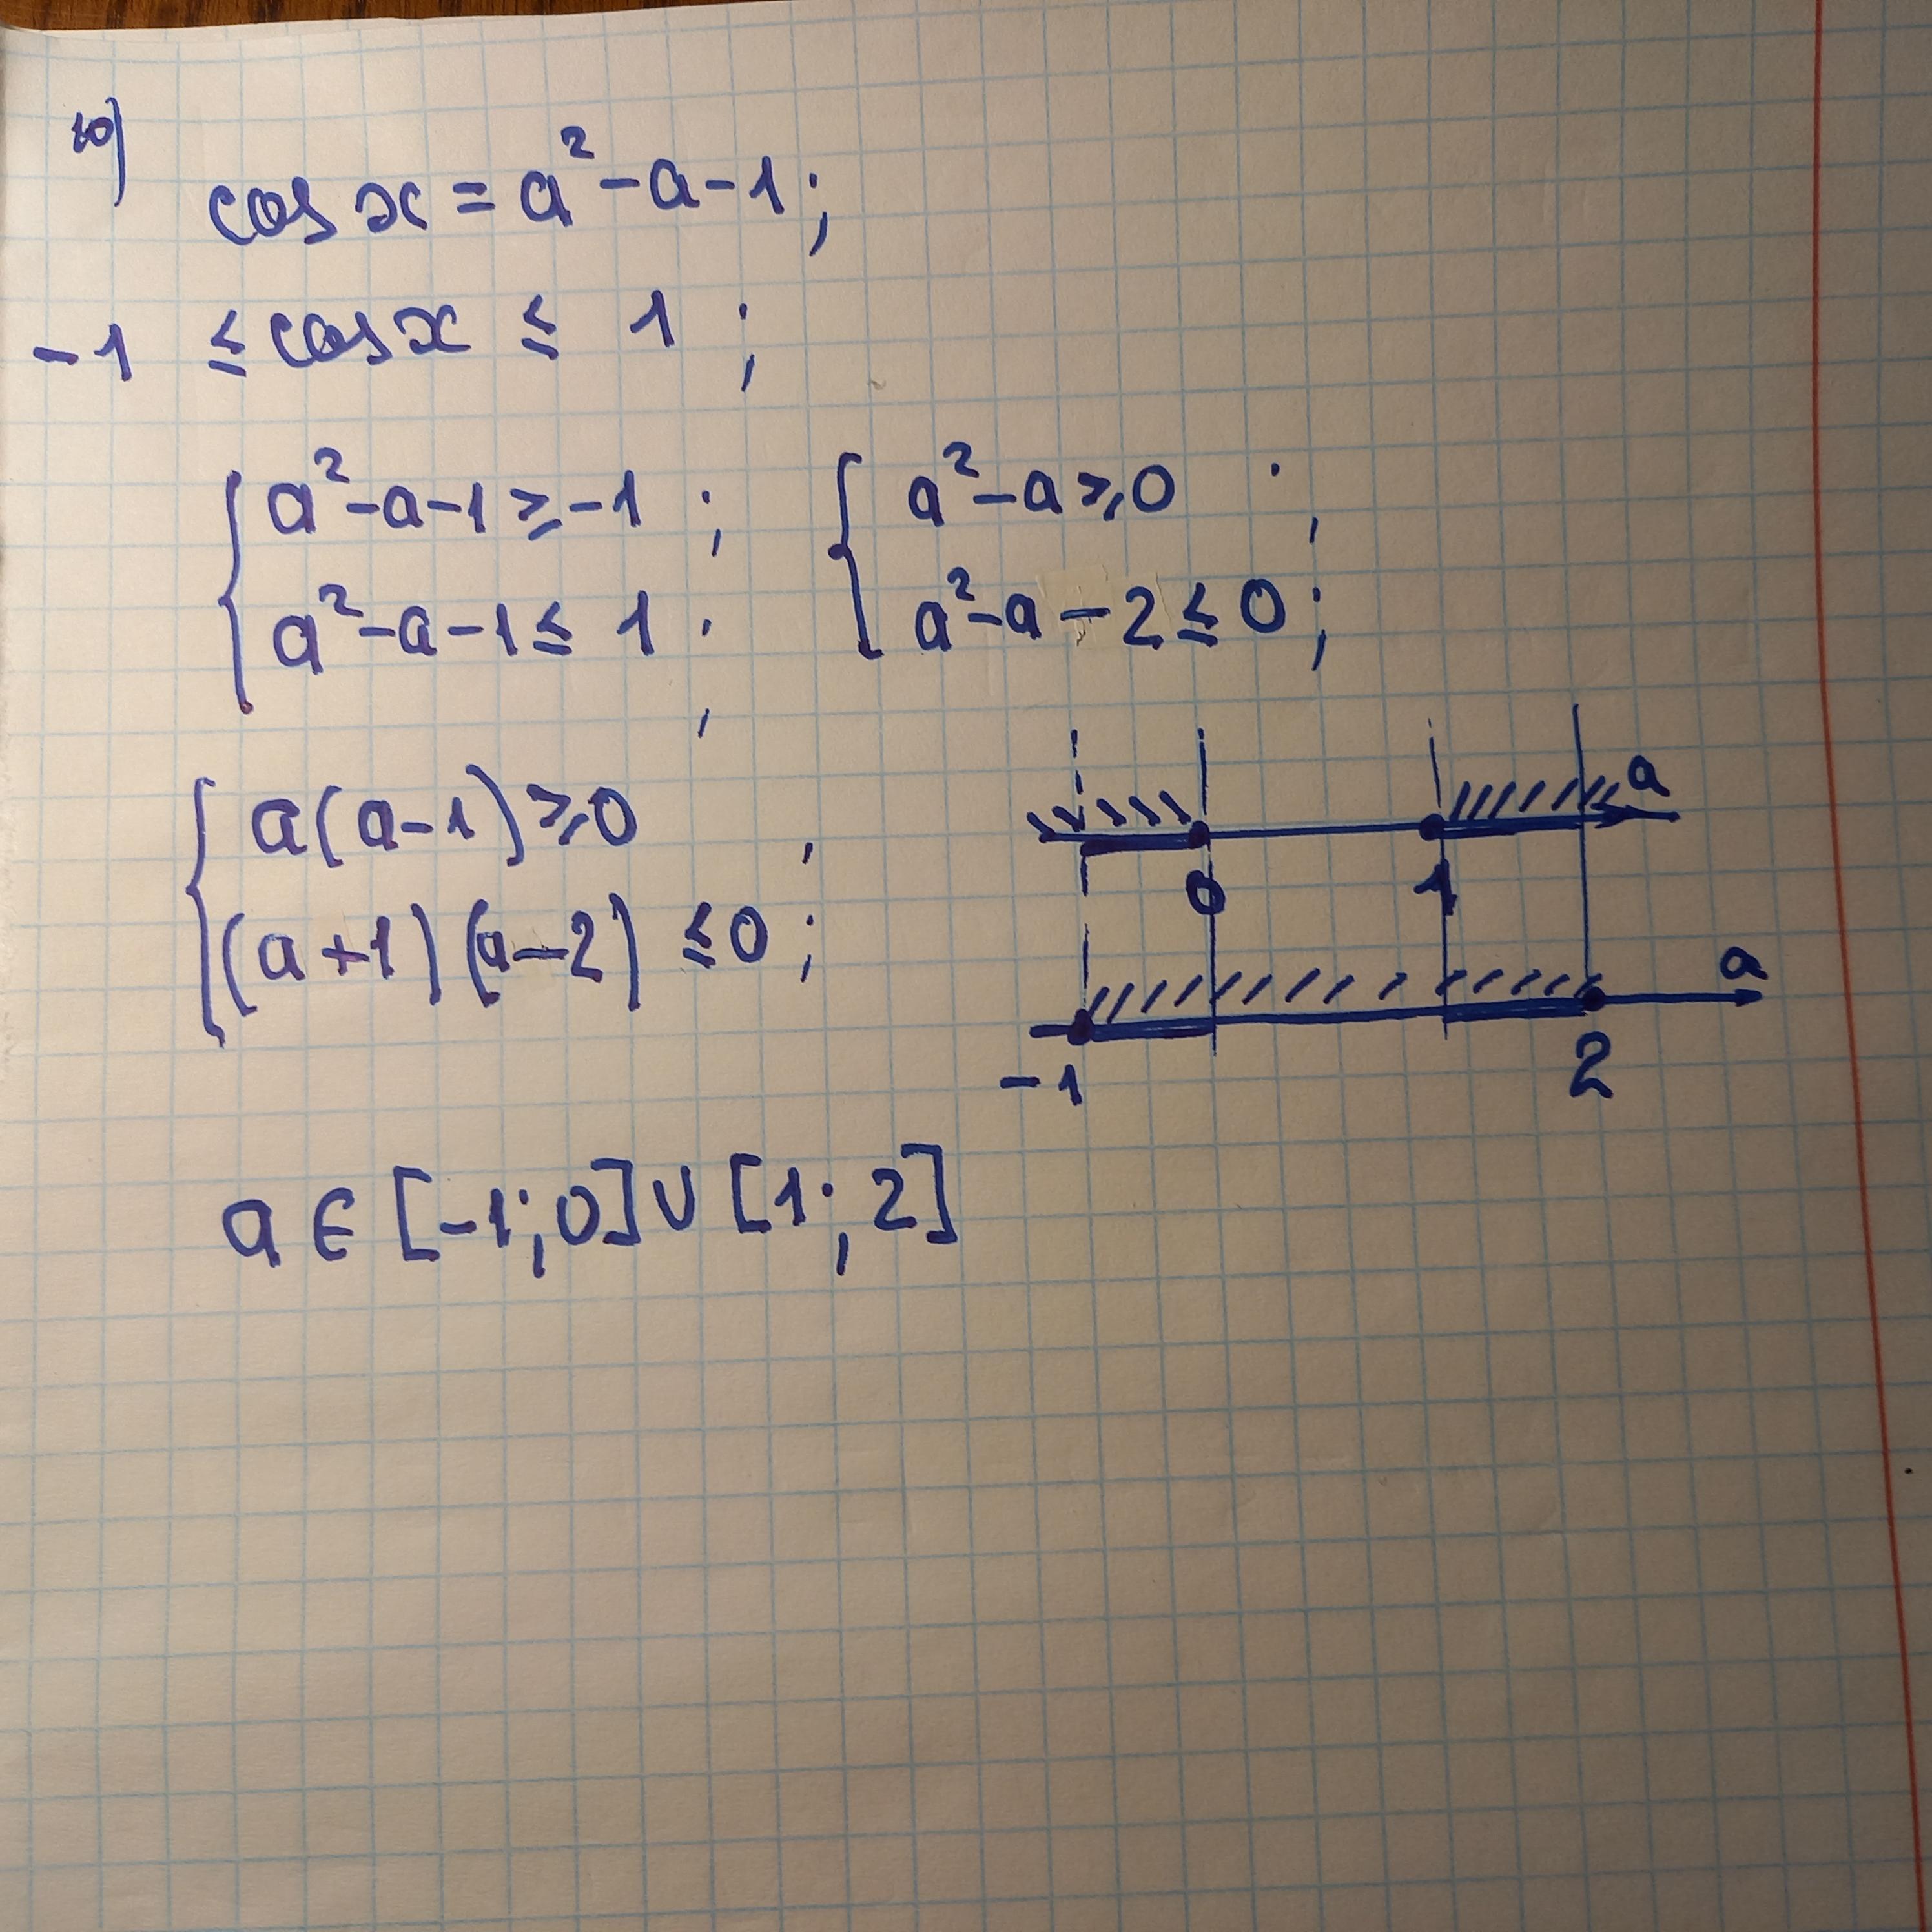 10)
cos x = a² - a - 1;
-1 ≤ cos x ≤ 1 ;
{ a² - a - 1 ≥ -1 ; { a² - a ≥ 0 ;
a² - a - 1 ≤ 1 ; a² - a - 2 ≤ 0 ;
{ a(a-1) ≥ 0 ;
(a+1)(a-2) ≤ 0 ;
a
0 1
a
-1 2
a ∈ [-1;0] ∪ [1; 2]